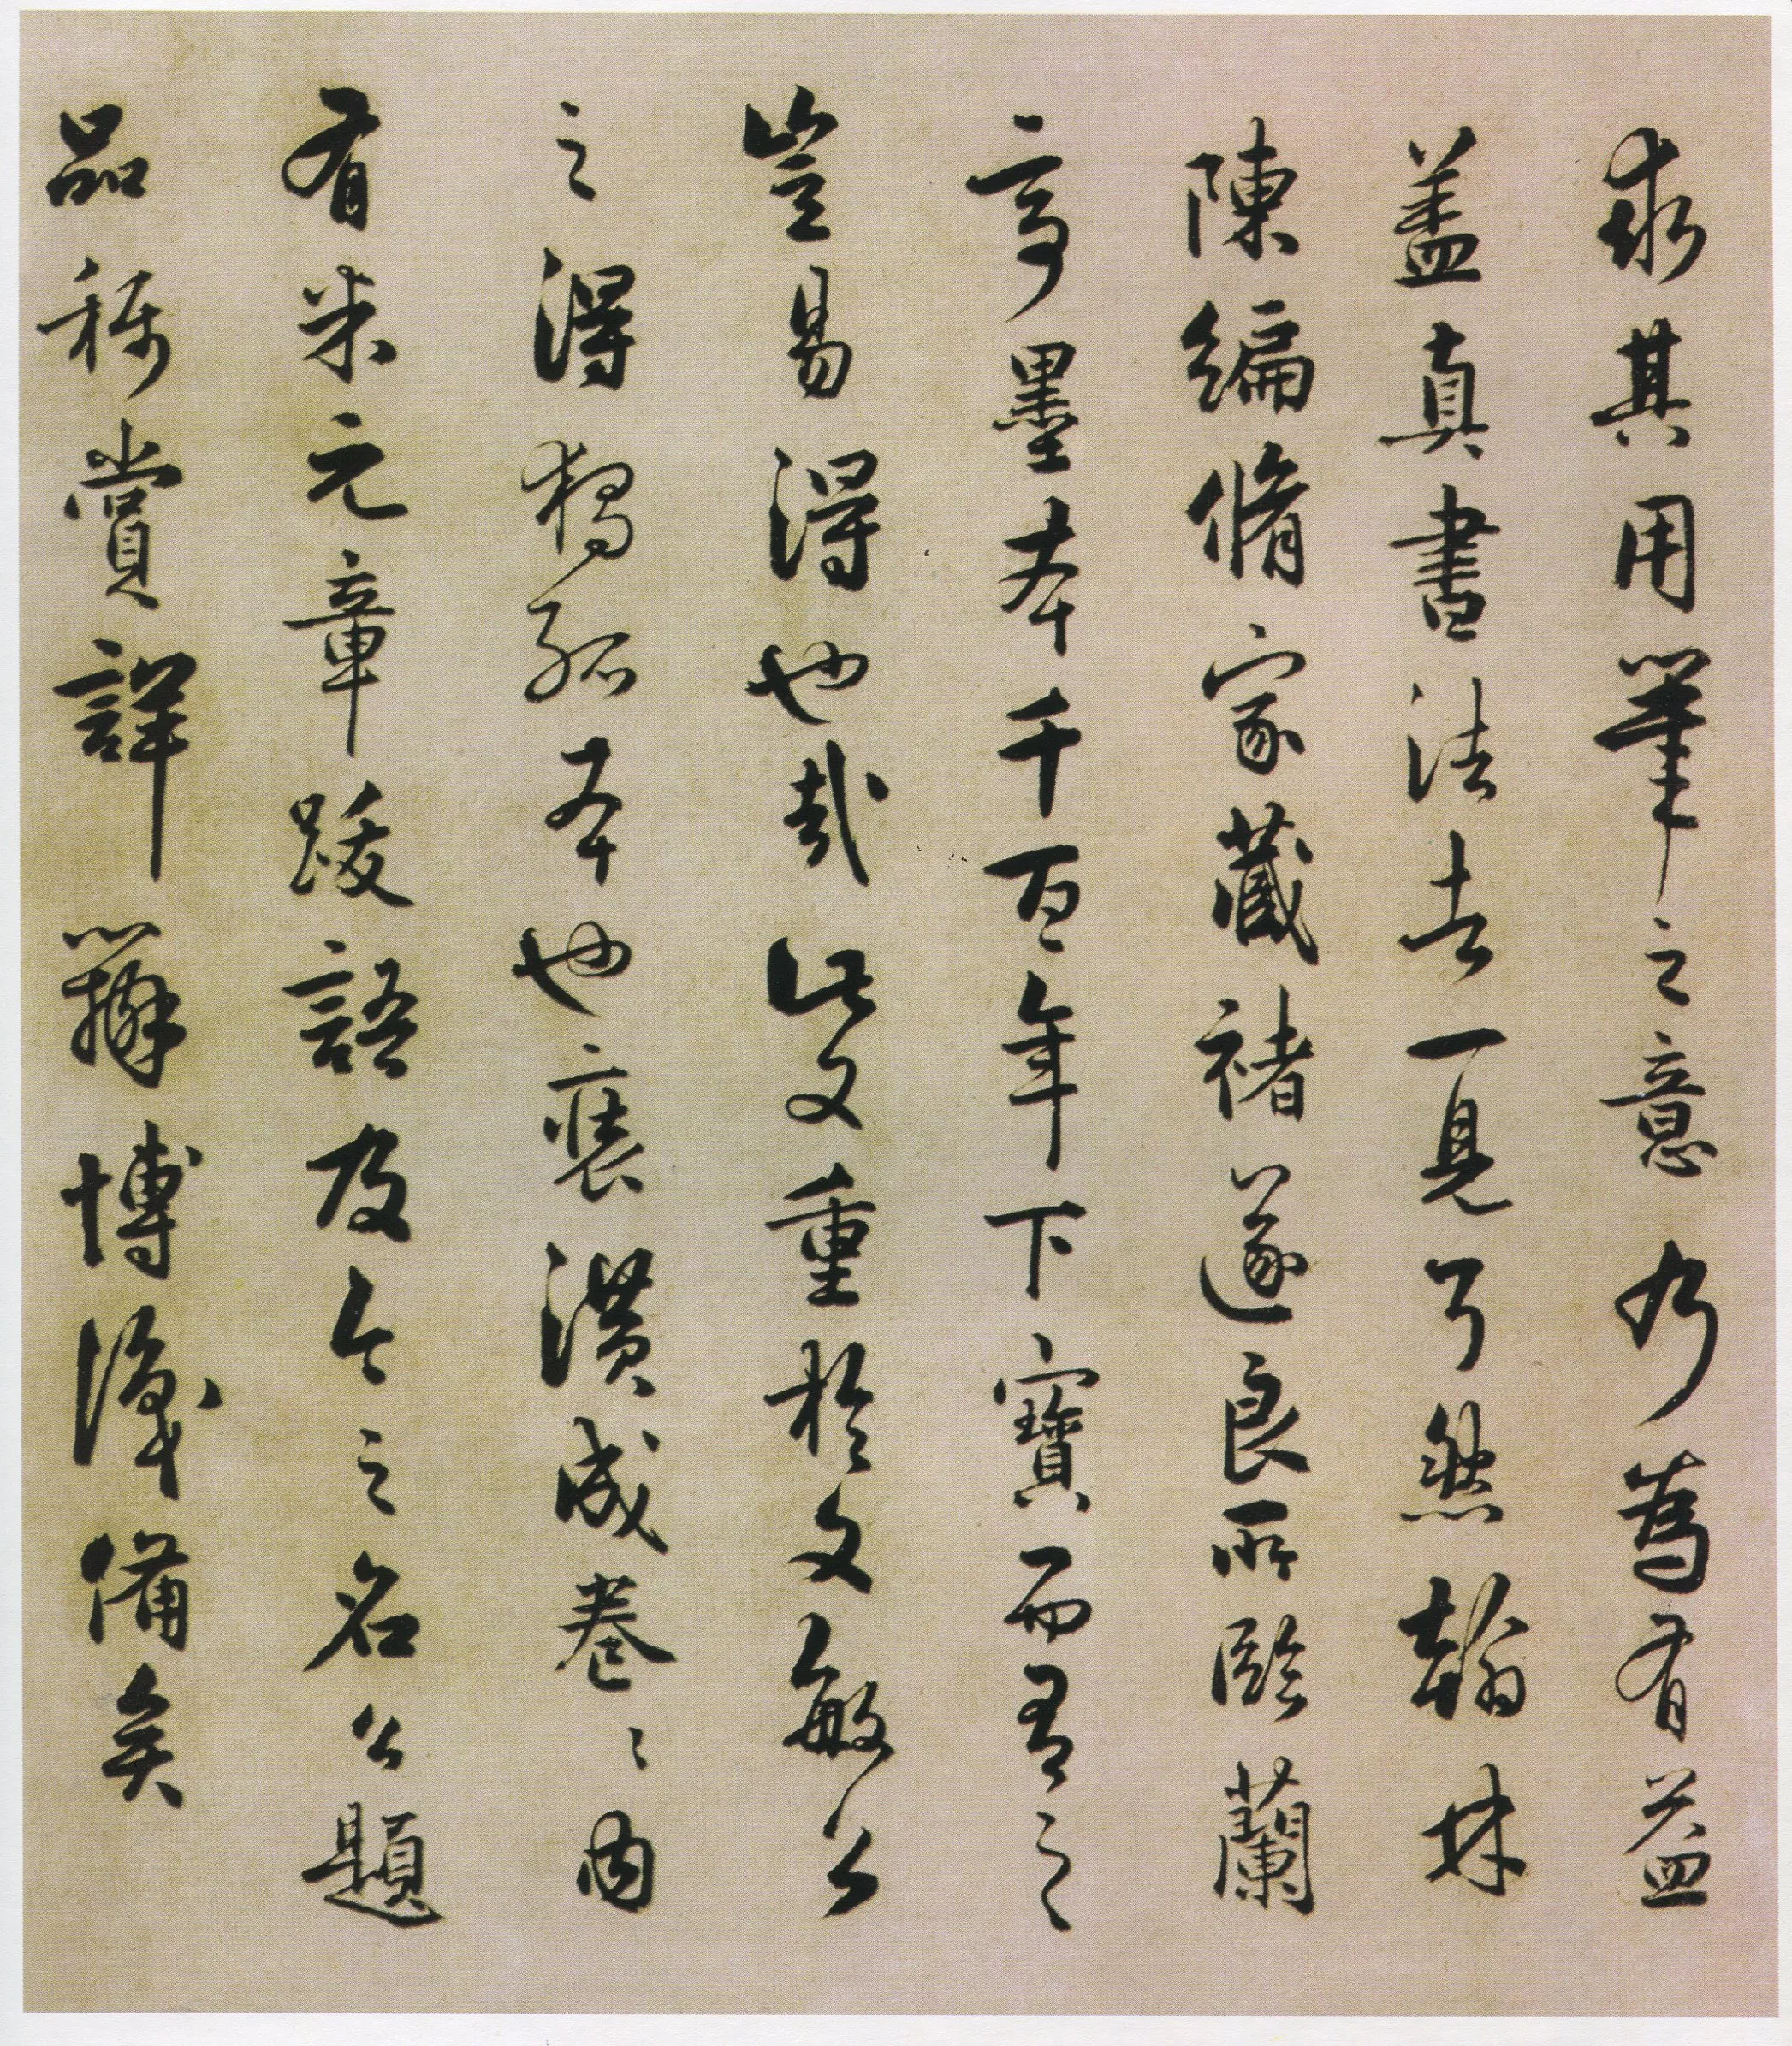 求其用筆之意乃為有益
盖真書法去一見了然翰林
陳編脩家藏褚遂良所臨蘭
亭墨本千百年下寳而有之
豈易得也哉此又重於文敏公
之得獨孤本也裒潢成卷〻内
有米元章跋語及今之名公題
品稱賞詳辯博識備矣